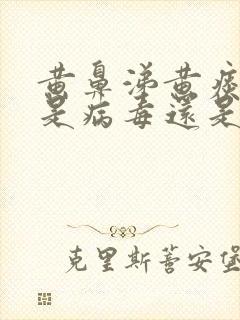 黄鼻涕黄痰
是病毒还是
克里斯蒈安堡